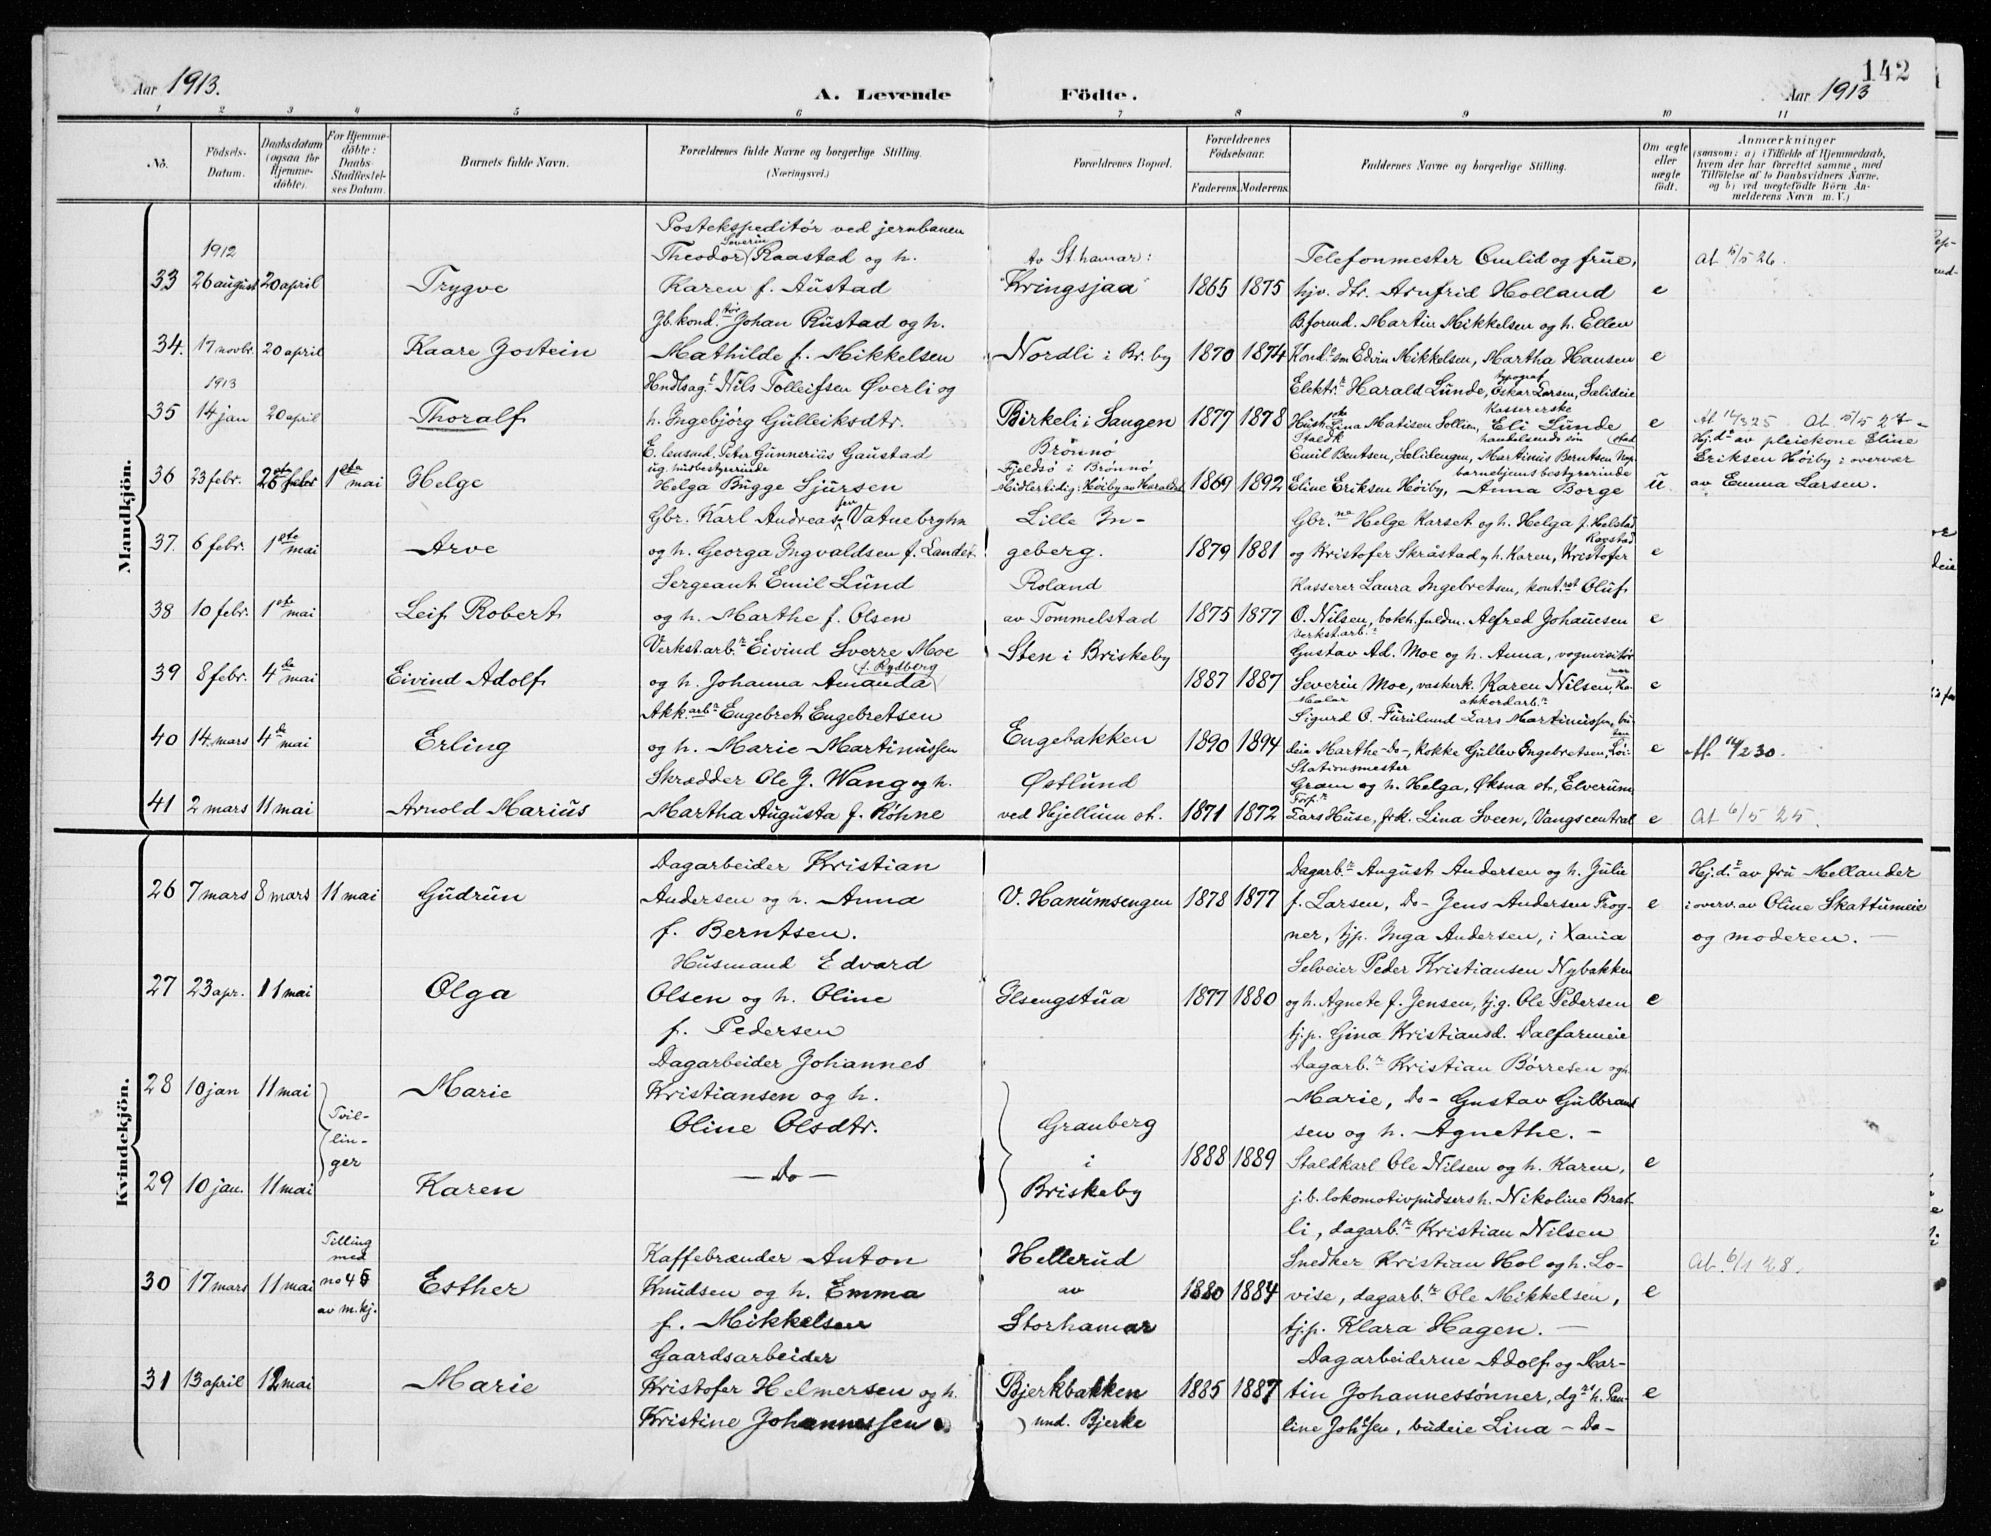 142
Aar 1913.
A. Levende Födte.
Aar 1913
1 2 3 4 5 6 7 8 9 10 11
No.
Födsels-Datum.
Daabsdatum (ogsaa for Hjemme-döbte).
For Hjemme-döbte: Daabs-Stadfæstel-ses Datum.
Barnets fulde Navn.
Forældrenes fulde Navne og borgerlige Stilling. (Næringsvei.)
Forældrenes Bopæl.
Forældrenes Födselsaar.
Faderens. Moderens.
Faddernes Navne og borgerlige Stilling.
Om ægte eller uægte födt.
Anmærkninger
(saasom: a) i Tilfælde af Hjemmedaab, hvem der har forrettet samme, med Tilföielse af to Daabsvidners Navne. og b) ved uægtefödte Börn An-melderens Navn m. V.)
Mandkjön.
1912
33 26 august 20 april Trygve
Postekspeditør ved jernbanen
Theodor Severin Raastad og h.
Karen f. Austad
Av St.hamar:
Kringsjaa 1865 1875
Telefonmester Omlid og frue,
hjv. dtr. Arnfrid Holland e
At 5/5 26.
34. 17 novbr. 20 april Kaare Jostein
Jb. kond.tør Johan Rustad og h.
Mathilde f. Mikkelsen
Nordli i Br. by 1870 1874
Bformd. Martin Mikkelsen og h. Ellen
Kond.r søn Edvin Mikkelsen, Martha Hansen e
1913
35 14 jan 20 april Thoralf
Hndlsag.t Nils Tolleifsen Øverli og
h. Ingebjørg Gulleiksdtr.
Birkeli i Sangen 1877 1878
Elektr.r Harald Lunde, typograf Oskar Larsen, Sælideie
Lina Matisen Sollien, Kassererske Eli Lunde e
At 14/3 25 At 5/5 27
36 23 febr. 25 febr 1ste mai Helge
E. lensmd. Peter Gunnerius Gaustad
ug. husbestyrinde
Helga Bugge Sjursen
Brönnö
Fjeldsö i Brönnö
Midlertidig: Höiby av Haralds. 1869 1892
Emil Bentsen, Sælidengen, handelsmds søn Martinus Berntsen
Eline Eriksen Höiby, barnehjemsbestyrerinde Anna Borge u
Hj.d. av pleiekone Eline
Eriksen Höiby i overvær
av Emma Larsen.
37. 6 febr. 1ste mai Arve
Gbr. Karl Andreas Vatnebrghn
og h. Georga Ingvaldsen f. Landet
Lille In-
geberg. 1879 1881
Gbr. Helge Karset og h. Helga f. Helstad
og Kristofer Skråstad og h. Karen, Kristofer e
38 10 febr. 1ste mai Leif Robert
Sergeant Emil Lund
og h. Marthe f. Olsen
Roland
av Tommelstad 1875 1877
Kasserer Laura Ingebretsen, kont.rst Oluf
O. Nilsen, bokh. fuldm. Alfred Johansen e
39 8 febr. 4de mai Eivind Adolf
Verkst.arb.r Eivind Sverre Moe
og h. Johanna Amanda f. Rydberg
Sten i Briskeby 1887 1887
Verkst.arb.r
Gustav Ad. Moe og h. Anna, vognvisitør
Severin Moe, vaskerk. Karen Nilsen, e
40 14. mars 4de mai Erling
Akk.arb.r Engebret Engebretsen
og h. Marie Martinussen
Engebakken 1890 1894
Maler akkordarb.r
Sigurd O. Furulund Lars Martinussen, bu-
deie Marthe-Do-, kokke Gullev Engebretsen, e
At. 16/2 30.
41 2 mars 11 mai Arnold Marius
Skrædder Ole J. Wang og h.
Martha Augusta f. Röhne
Østlund
ved Hjellum st. 1871 1872
Stationsmester
Gram og h. Helga, Øksna st, Elverum
Forp.r
Lars Huse, frk. Lina Sveen, Vangscentral e
At 6/5 25.
Kvindekjön.
26 7 mars 8 mars 11 mai Gudrun
Dagarbeider Kristian
Andersen og h. Anna
f. Berntsen.
V. Hanumsengen 1878 1877
Dagarb.r August Andersen og h. Julie
f. Larsen, Do- Jens Andersen Frog-
ner, tjp. Inga Andersen, i Xania e
Hj.d. av fru Mellander
i overv. av Oline Skattumeie
og moderen. —
27 23 apr. 11 mai Olga
Husmand Edvard
Olsen og h. Oline
f. Pedersen
Ilsengstua 1877 1880
Selveier Peder Kristiansen Nybakken
og h. Agnete f. Jensen, tj.g. Ole Pedersen
tj.p. Gina Kristiansd. Dalfarmeie e
28 10 jan 11 mai Marie
Tvil-
lin-
ger
Dagarbeider Johannes
Kristiansen og h.
Oline Olsdtr.
Granberg
i
Briskeby 1888 1889
Dagarb.r Kristian Börresen og h
Marie, Do- Gustav Gulbrand
sen og h. Agnethe. —
29 10 jan. 11 mai Karen
— Do —
Staldkarl Ole Nilsen og h. Karen, e
j.b. lokomotivpudsers h. Nikoline Brat-
li, dagarb.r Kristian Nilsen
30 17 mars 11 mai Esther
Tilling
med
no 45
av m.kj.
Kaffebrænder Anton
Knudsen og h. Emma
f. Mikkelsen
Hellerud
av
Storhamar 1880 1884
Snedker Kristian Hol og h. Lo-
vise, dagarb.r Ole Mikkelsen,
tjp. Klara Hagen. — e
At. 6/1 28.
31 13 april 12 mai Marie
Gaardsarbeider
Kristofer Helmersen og h.
Kristine Johannessen
Bjerkbakken
und. Bjerke 1885 1887
Dagarbeiderne Adolf og Mar-
tin Johannessønner, dg.rs h. Pau-
line Johssen, budeie Lina — Do — e